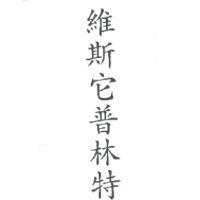 維斯它普林特